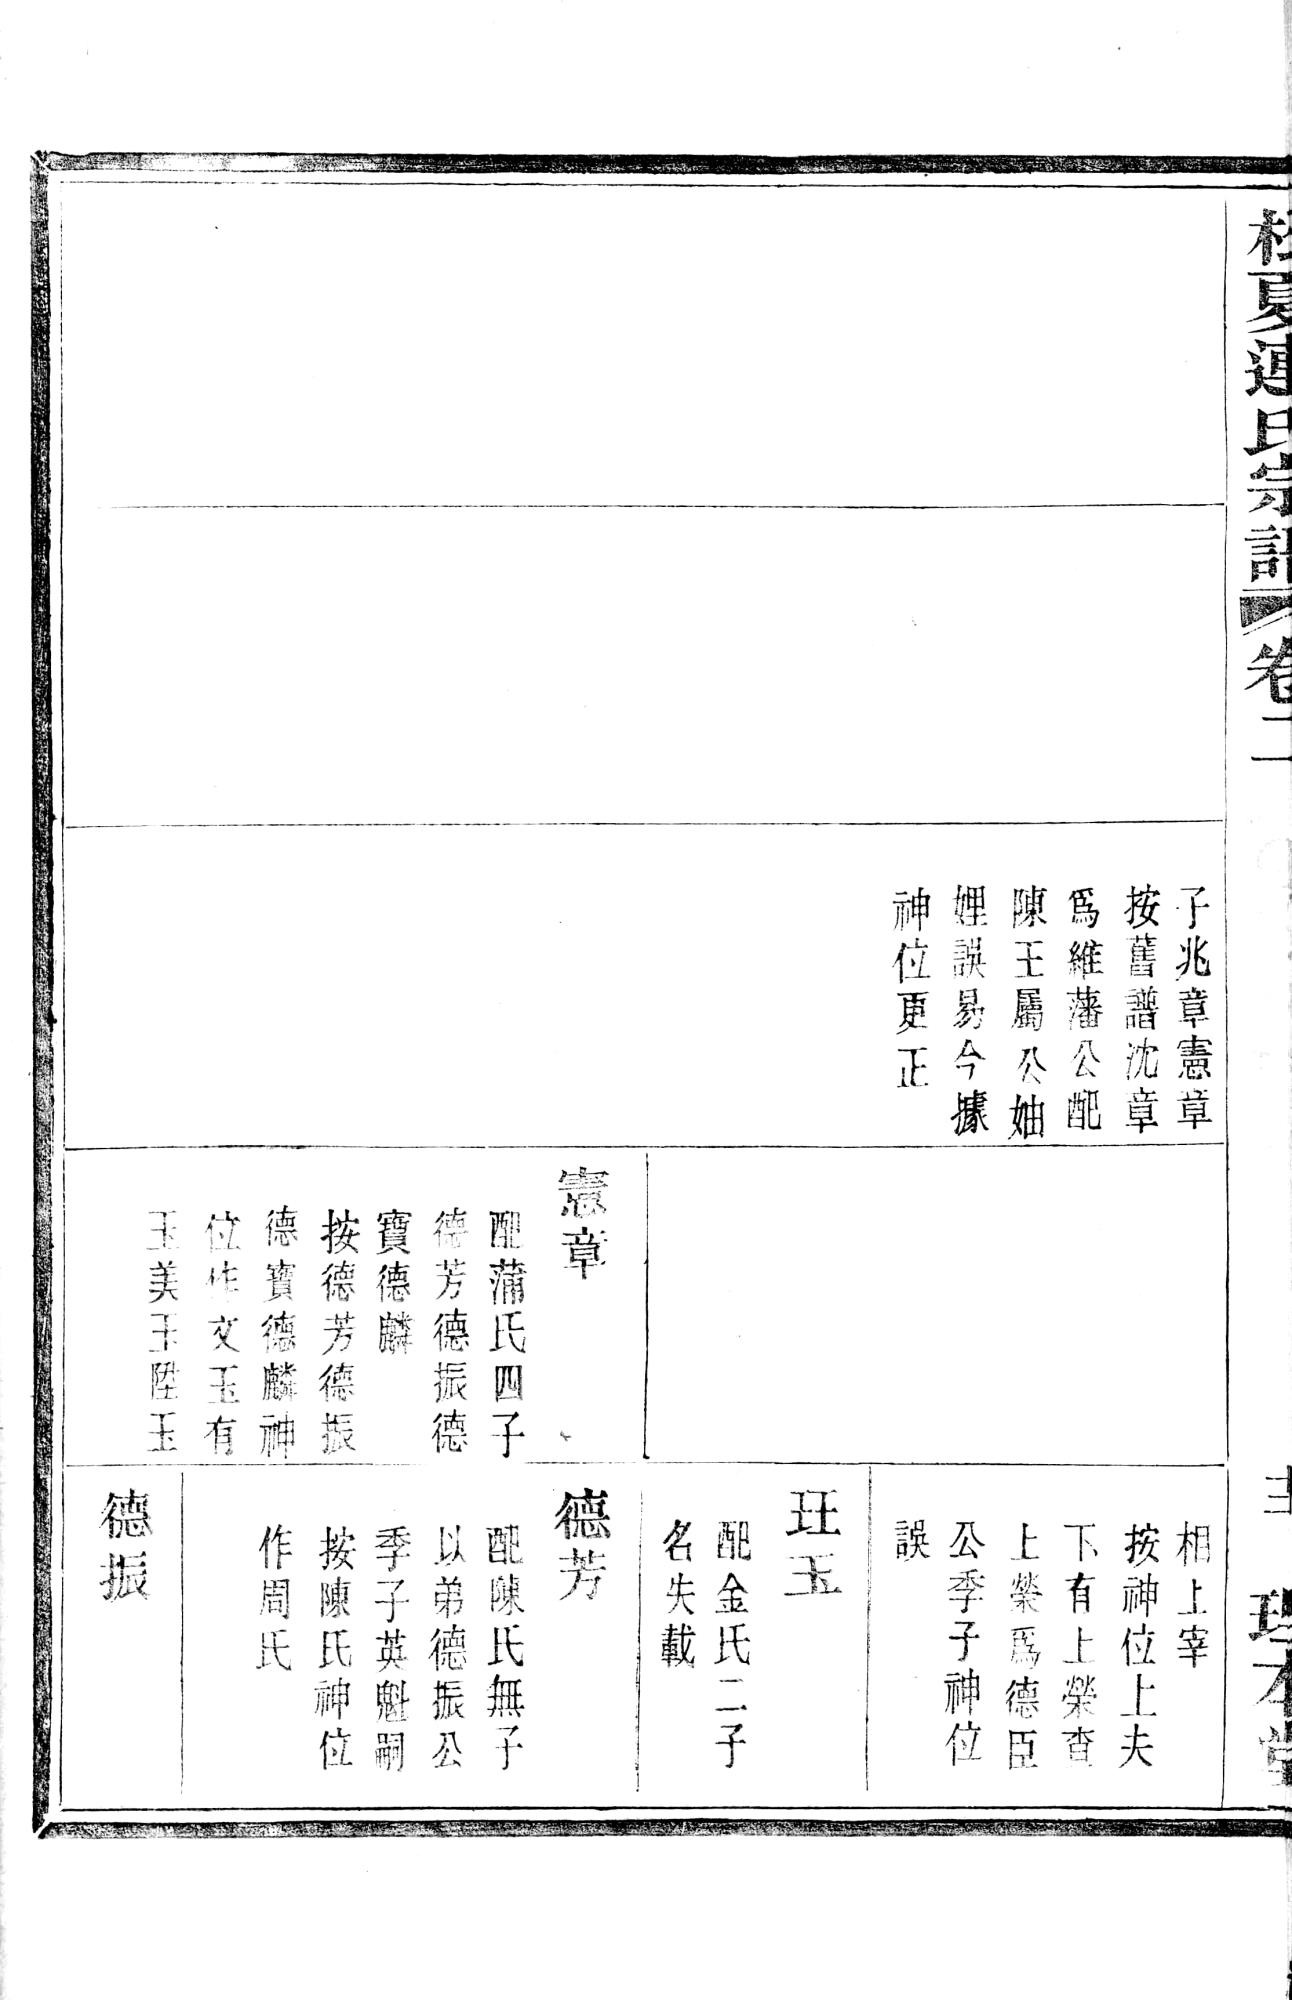 夏連氏宗譜 卷二
理本堂
子兆章憲章
按舊譜沈章
爲維藩公配
陳王屬公妯
娌誤易今據
神位更正
憲章
配蒲氏四子
德芳德振德
寶德麟
按德芳德振
德寶德麟神
位作文玉有
玉美玉陞玉
相上宰
按神位上夫
下有上榮查
上榮爲德臣
公季子神位
誤
玨玉
配金氏二子
名失載
德芳
配陳氏無子
以弟德振公
季子英魁嗣
按陳氏神位
作周氏
德振